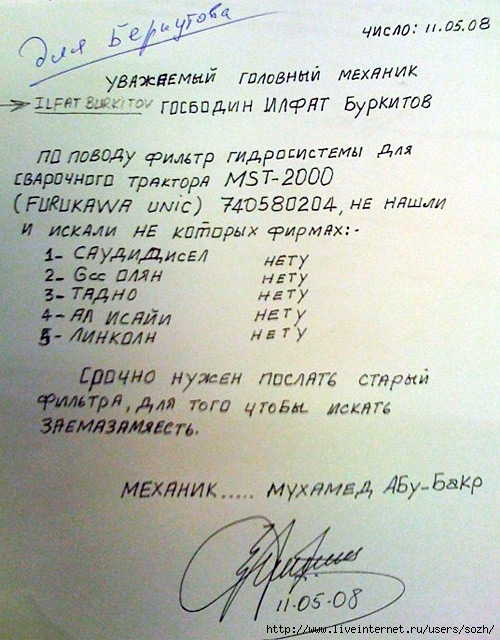 для Беркутова
ЧИСЛО: 11.05.08
УВАЖАЕМЫЙ ГОЛОВНЫЙ МЕХАНИК
ILFAT BURKITOV ГОСБОДИН ИЛФАТ БУРКИТОВ
ПО ПОВОДУ ФИЛЬТР ГИДРОСИСТЕМЫ ДЛЯ
СВАРОЧНОГО ТРАКТОРА MST-2000
(FURUKAWA UNIC) 740580204, НЕ НАШЛИ
И ИСКАЛИ НЕ КОТОРЫХ ФИРМАХ:-
1- САУДИДИСЕЛ НЕТУ
2- Gcc ОЛЯН НЕТУ
3- ТАДНО НЕТУ
4- АЛ ИСАЙИ НЕТУ
5- ЛИНКОЛН НЕТУ
СРОЧНО НУЖЕН ПОСЛАТЬ СТАРЫЙ
ФИЛЬТРА, ДЛЯ ТОГО ЧТОБЫ ИСКАТЬ
ЗАЕМАЗАМЯЕСТЬ.
МЕХАНИК..... МУХАМЕД АБУ-БАКР
11.05.08
http://www.liveinternet.ru/users/sozh/